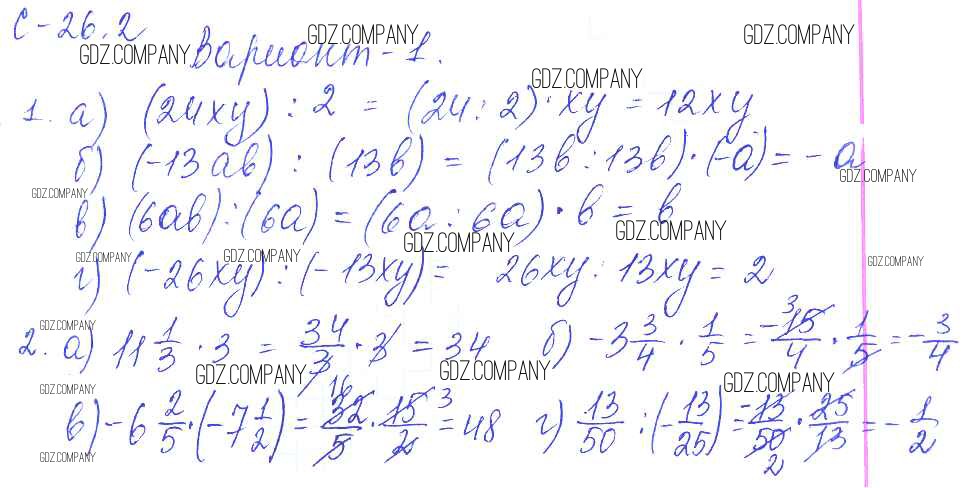 С-26.2
GDZ.COMPANY GDZ.COMPANY GDZ.COMPANY
Вариант-1.
GDZ.COMPANY
1. а) (24xy) : 2 = (24 : 2) · xy = 12xy
б) (-13ab) : (13b) = (13b : 13b) · (-a) = -a
GDZ.COMPANY GDZ.COMPANY
в) (6ab) : (6a) = (6a : 6a) · b = b
GDZ.COMPANY GDZ.COMPANY
GDZ.COMPANY GDZ.COMPANY GDZ.COMPANY
г) (-26xy) : (-13xy) = 26xy : 13xy = 2
GDZ.COMPANY
2. а) 11 1/3 · 3 = 34/3 · 3 = 34 б) -3 3/4 · 1/5 = -15/4 · 1/5 = -3/4
GDZ.COMPANY GDZ.COMPANY GDZ.COMPANY GDZ.COMPANY
в) -6 2/5 · (-7 1/2) = 32/5 · 15/2 = 48 г) 13/50 : (-13/25) = -13/50 · 25/13 = -1/2
GDZ.COMPANY